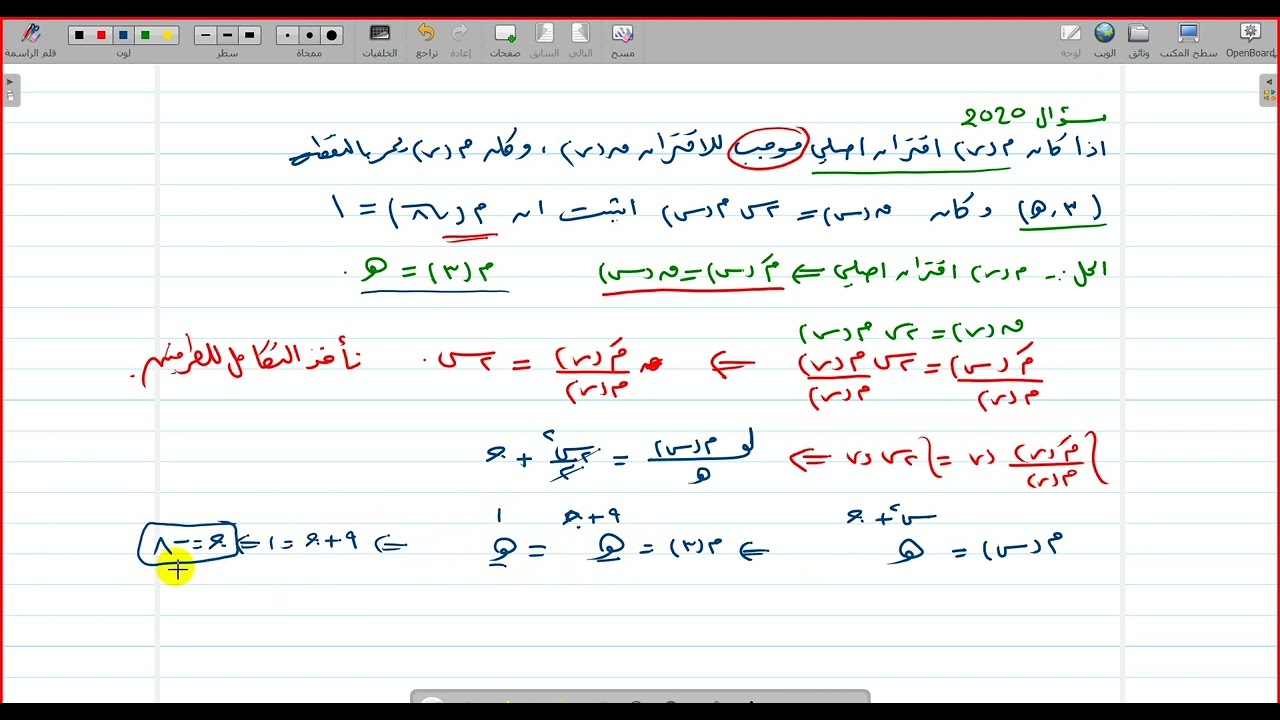 قلم الراسمة
لون
سطر
ممحاة
الخلفيات
تراجع
إعادة
صفحات
السابق
التالي
مسح
لوحة
الويب
وثائق
سطح المكتب
OpenBoard
سؤال 2020
اذا كان م(س) اقتران اصلي موجب للاقتران ق(س) ، وكان م(س) يمر بالنقطة
(٣، هـ) وكان ق(س) = ٢س م(س) اثبت ان م(√٨) = ١
الحل :- م(س) اقتران اصلي ⇐ مَ(س) = ق(س) م(٣) = هـ .
ق(س) = ٢س م(س)
مَ(س)/م(س) = ٢س م(س)/م(س) ⇐ مَ(س)/م(س) = ٢س . نأخذ التكامل للطرفين .
∫ مَ(س)/م(س) دس = ∫ ٢س دس ⇐ لو_هـ م(س) = ٢س²/٢ + جـ
م(س) = هـ^(س² + جـ) ⇐ م(٣) = هـ^(٩ + جـ) = هـ^١ ⇐ ٩ + جـ = ١ ⇐ جـ = -٨